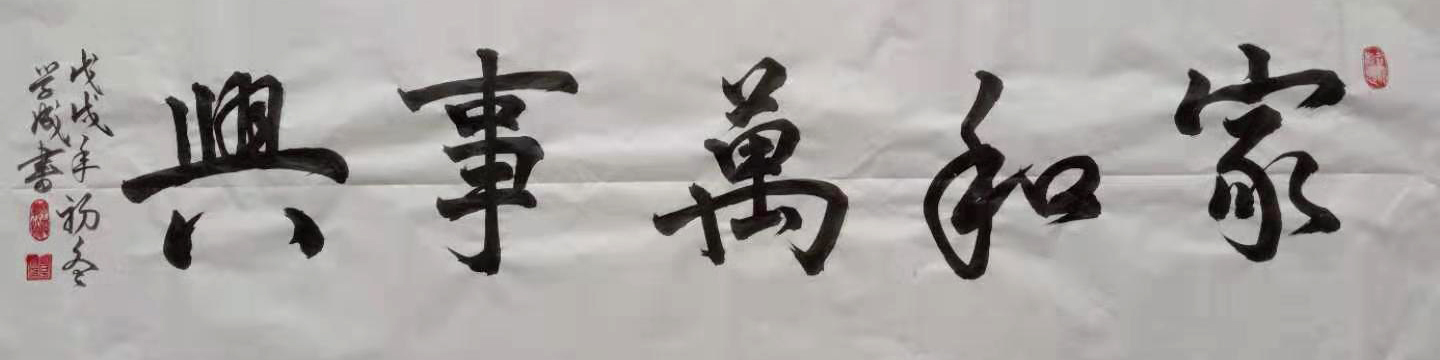 家和萬事興
戊戌年初冬
学成書